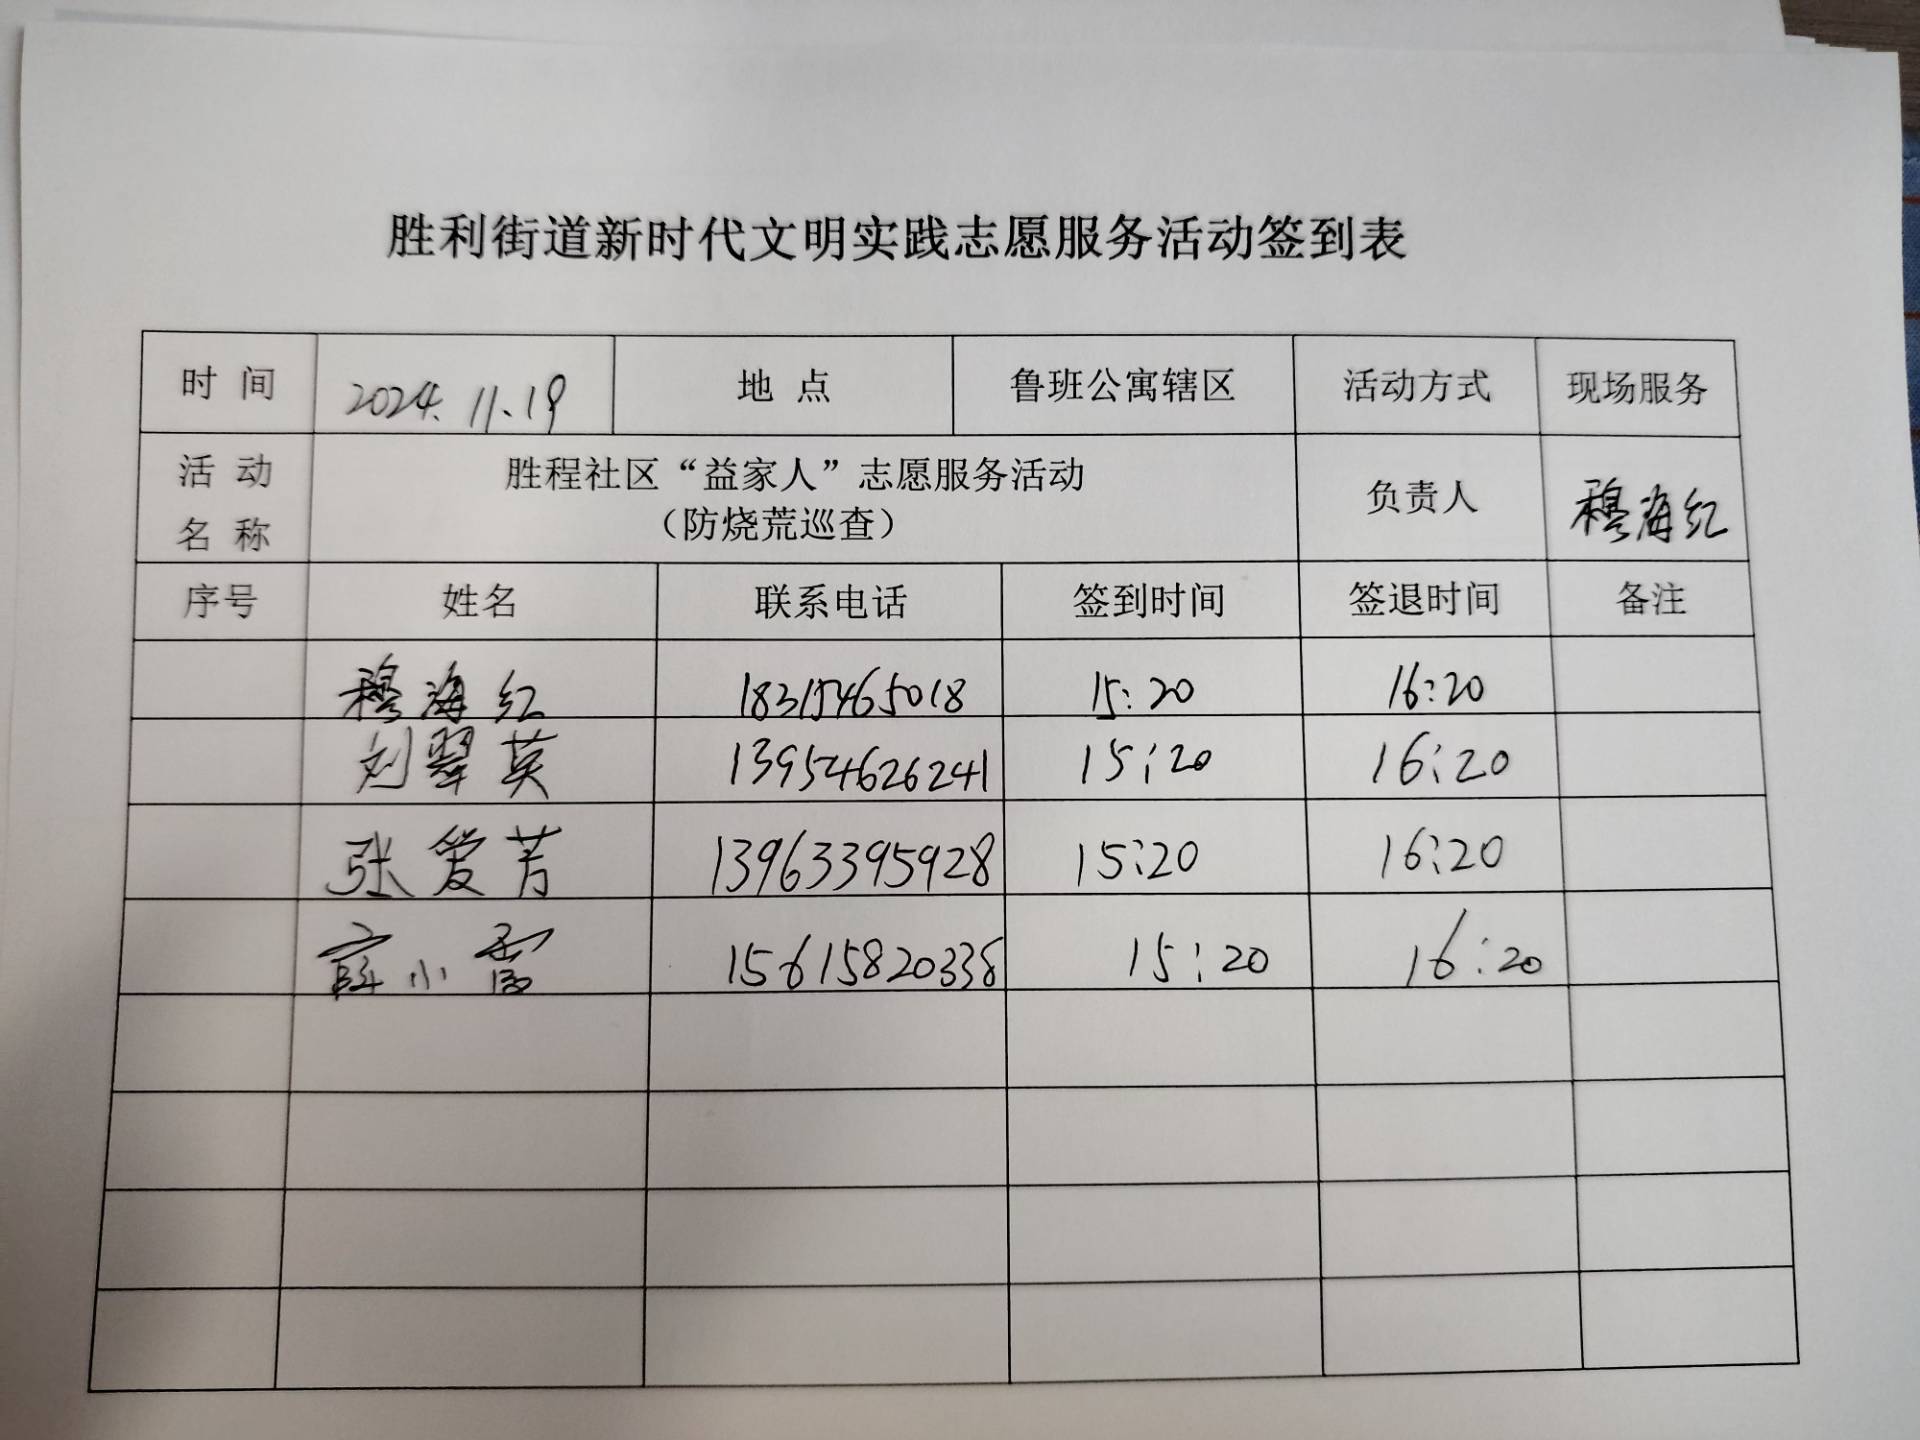 胜利街道新时代文明实践志愿服务活动签到表
时 间 2024.11.19 地 点 鲁班公寓辖区 活动方式 现场服务
活 动 名 称 胜程社区“益家人”志愿服务活动 负责人 穆海红
（防烧荒巡查）
序号 姓名 联系电话 签到时间 签退时间 备注
穆海红 18315465018 15:20 16:20
刘翠英 13954626241 15:20 16:20
张爱芳 13963395928 15:20 16:20
小雪 15615820338 15:20 16:20